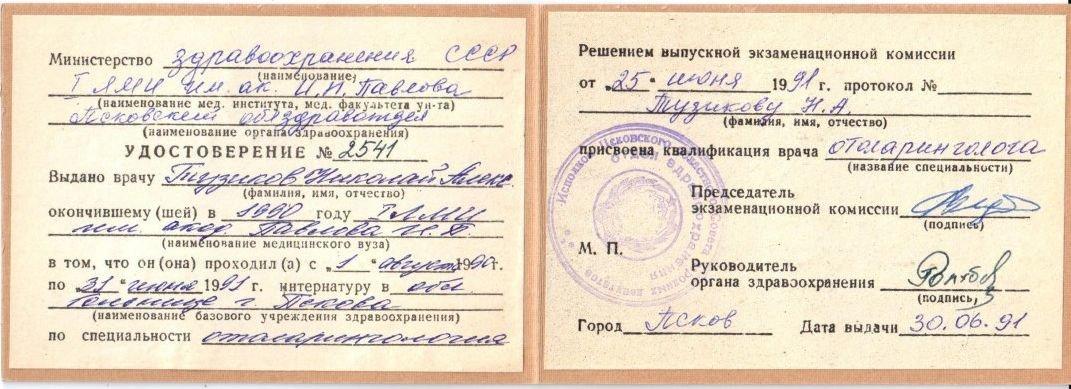 Министерство здравоохранения СССР
(наименование)
I ЛМИ им. ак. И.П. Павлова
(наименование мед. института, мед. факультета ун-та)
Псковский облздравотдел
(наименование органа здравоохранения)
УДОСТОВЕРЕНИЕ № 2541
Выдано врачу Тузиков Николай Алекс.
(фамилия, имя, отчество)
окончившему (шей) в 1990 году I ЛМИ
им. акад. Павлова И.П.
(наименование медицинского вуза)
в том, что он (она) проходил (а) с „1 “ августа 1990 г.
по „31“ июня 1991 г. интернатуру в обл.
больнице г. Пскова
(наименование базового учреждения здравоохранения)
по специальности отоларингология
Решением выпускной экзаменационной комиссии
от „25 “ июня 1991 г. протокол №
Тузикову Н.А.
(фамилия, имя, отчество)
присвоена квалификация врача отоларинголога
(название специальности)
Председатель
экзаменационной комиссии
(подпись)
М. П.
Руководитель
органа здравоохранения
(подпись)
Город Псков Дата выдачи 30.06.91
Исполком Псковского областного Совета народных депутатов
Отдел здравоохранения